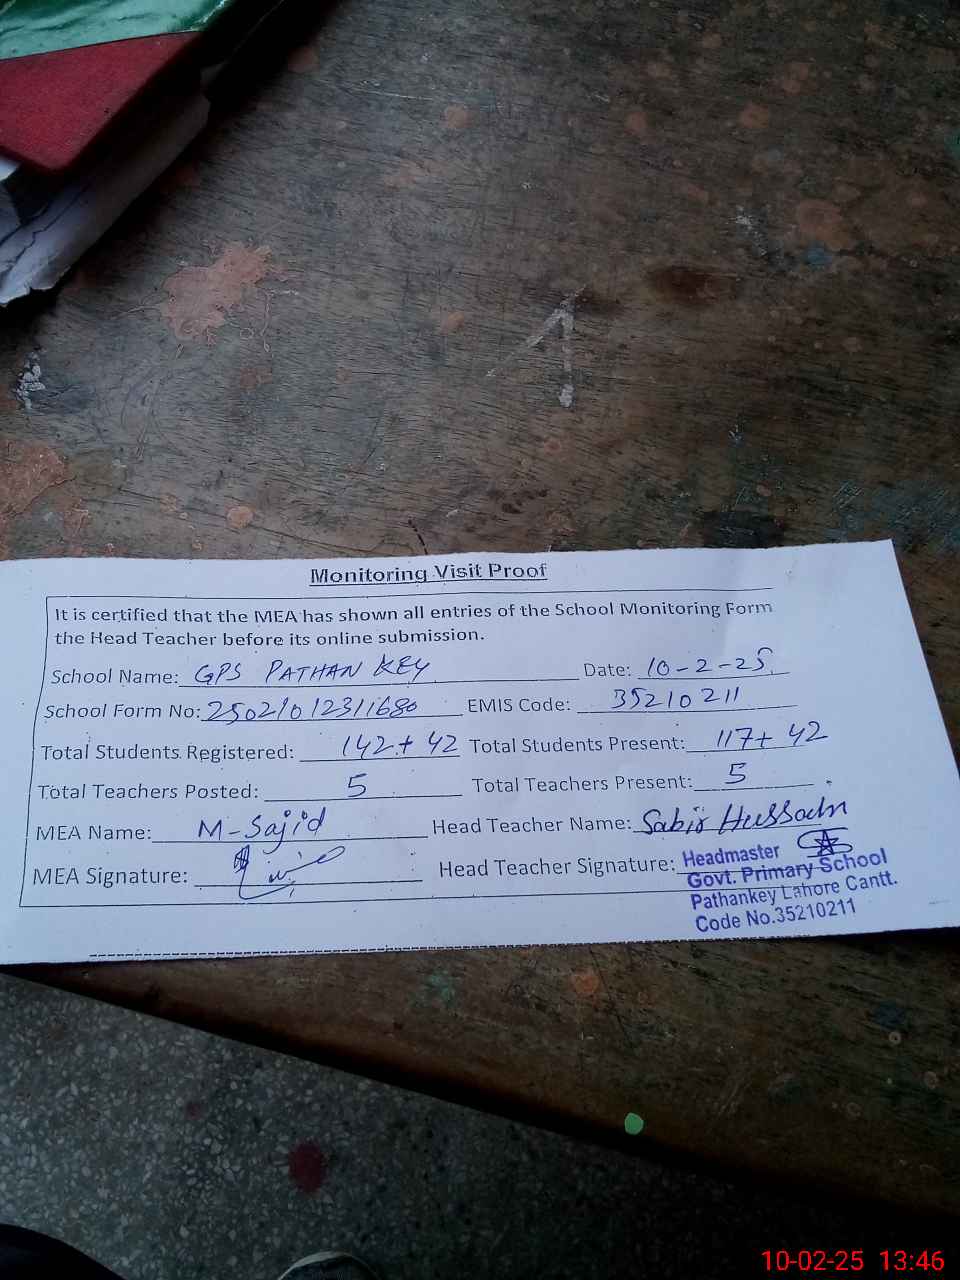 Monitoring Visit Proof
It is certified that the MEA has shown all entries of the School Monitoring Form
the Head Teacher before its online submission.
School Name: GPS PATHAN KEY Date: 10-2-25
School Form No: 25021012311680 EMIS Code: 35210211
Total Students Registered: 142+42 Total Students Present: 117+42
Total Teachers Posted: 5 Total Teachers Present: 5
MEA Name: M-Sajid Head Teacher Name: Sabir Hussain
MEA Signature: Head Teacher Signature:
Headmaster
Govt. Primary School
Pathankey Lahore Cantt.
Code No.35210211
1
10-02-25 13:46